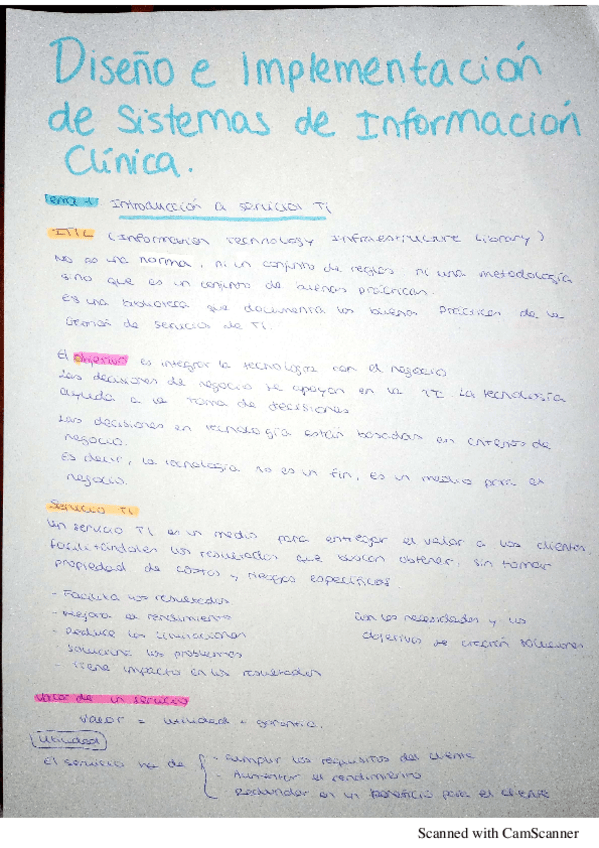 Diseño e Implementación
de Sistemas de Información
Clínica.
Tema 1: Introducción a servicios TI
ITIL (Information Technology Infrestructure Library)
No es una norma, ni un conjunto de reglas ni una metodología
sino que es un conjunto de buenas prácticas.
Es una biblioteca que documenta las buenas prácticas de la
Gestión de Servicios de TI.
El objetivo es integrar la tecnología con el negocio
Las decisiones de negocio se apoyan en la TI. La tecnología
ayuda a la toma de decisiones
Las decisiones en tecnología están basadas en criterios de
negocio.
Es decir, la tecnología no es un fin, es un medio para el
negocio.
Servicio TI
Un servicio TI es un medio para entregar el valor a los clientes,
facilitándoles los resultados que buscan obtener, sin tomar
propiedad de costos y riesgos específicos
- Facilita los resultados
- Mejora el rendimiento
- Reduce las limitaciones
- Soluciona los problemas
- Tiene impacto en los resultados
Con las necesidades y los
objetivos se crearán soluciones
Valor de un servicio
Valor = utilidad + garantía.
Utilidad
El servicio ha de
- Cumplir los requisitos del cliente
- Aumentar el rendimiento
- Redundar en un beneficio para el cliente
Scanned with CamScanner